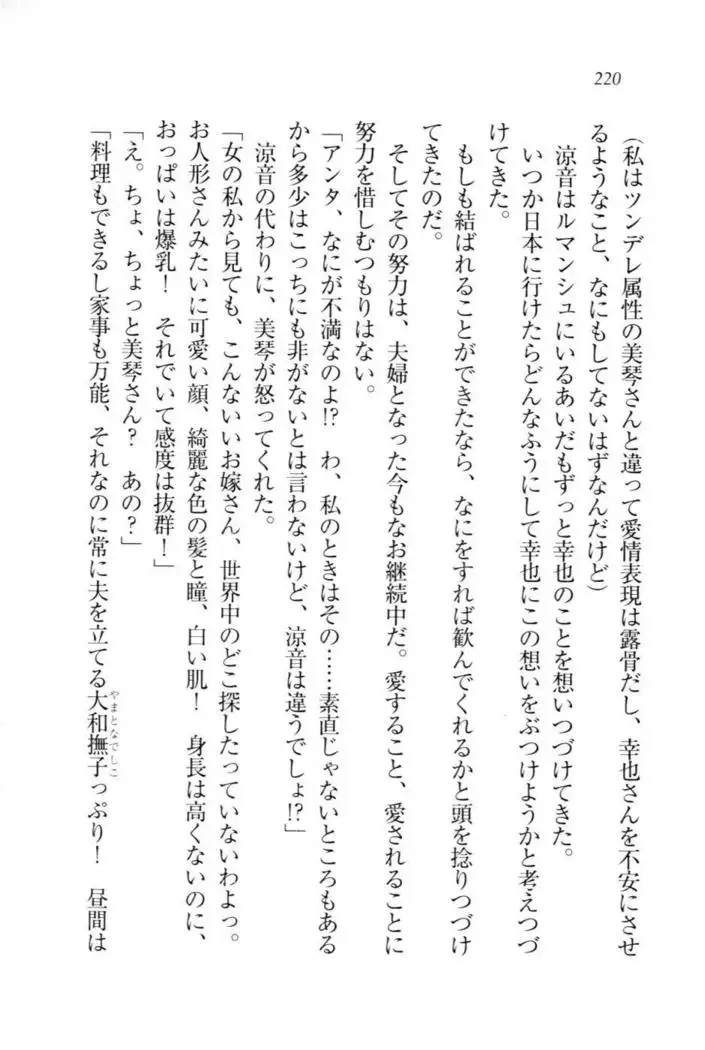 220
（私はツンデレ属性の美琴さんと違って愛情表現は露骨だし、幸也さんを不安にさせ
るようなこと、なにもしてないはずなんだけど）
涼音はルマンシュにいるあいだもずっと幸也のことを想いつづけてきた。
いつか日本に行けたらどんなふうにして幸也にこの想いをぶつけようかと考えつづ
けてきた。
もしも結ばれることができたなら、なにをすれば歓んでくれるかと頭を捻りつづけ
てきたのだ。
そしてその努力は、夫婦となった今もなお継続中だ。愛すること、愛されることに
努力を惜しむつもりはない。
「アンタ、なにが不満なのよ!?　わ、私のときはその……素直じゃないところもある
から多少はこっちにも非がないとは言わないけど、涼音は違うでしょ!?」
涼音の代わりに、美琴が怒ってくれた。
「女の私から見ても、こんないいお嫁さん、世界中のどこ探したっていないわよっ。
お人形さんみたいに可愛い顔、綺麗な色の髪と瞳、白い肌！　身長は高くないのに、
おっぱいは爆乳！　それでいて感度は抜群！」
「え。ちょ、ちょっと美琴さん？　あの？」
「料理もできるし家事も万能、それなのに常に夫を立てる大和撫子っぷり！　昼間は
やまとなでしこ